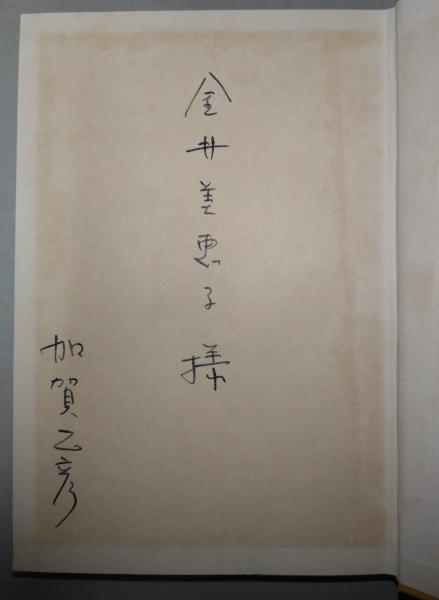 金井美恵子様
加賀乙彦